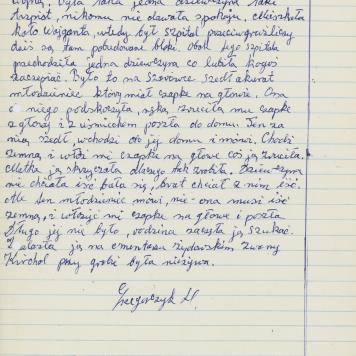 wojny. Była taka jedna dziewczyna taki
trzpiot, nikomu nie dawała spokoju. Mieszkała
koło Wajganta, wtedy był szpital przeciwgruźliczy
dziś są tam pobudowane bloki. Obok tego szpitala
przechodziła jedna dziewczyna co lubiła kogoś
zaczepiać. Było to na szedł akurat
młodzieniec który miał czapkę na głowie. Ona
do niego podskoczyła, ręką zrzuciła mu czapkę
z głowy i z uśmiechem poszła do domu. Ten za
nią szedł, wchodzi do jej domu i mówi. Chodź
zemną i włóż mi czapkę na głowę coś ją zrzuciła.
Matka ją skrzyczała dlaczego tak zrobiła. Dziewczyna
nie chciała iść bała się, brat chciał z nim iść.
Ale ten młodzieniec mówi, nie - ona musi iść
zemną, i włożyć mi czapkę na głowę i poszła
Długo jej nie było, rodzina zaczęła ją szukać.
Znalazła ją na cmentarzu żydowskim zwany
Kirchol przy grobie była nieżywa.
Grzegorczyk H.